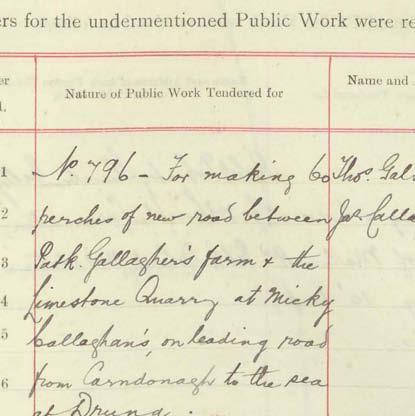 ers for the undermentioned Public Work were re
er
Nature of Public Work Tendered for
Name and
d.
1 No. 796 - For making 60 Thos. Gal
2 perches of new road between Jas. Calla
3 Patk. Gallagher's farm & the
4 Limestone Quarry at Micky
5 Callaghan's, on leading road
6 from Carndonagh to the sea
at Drung.